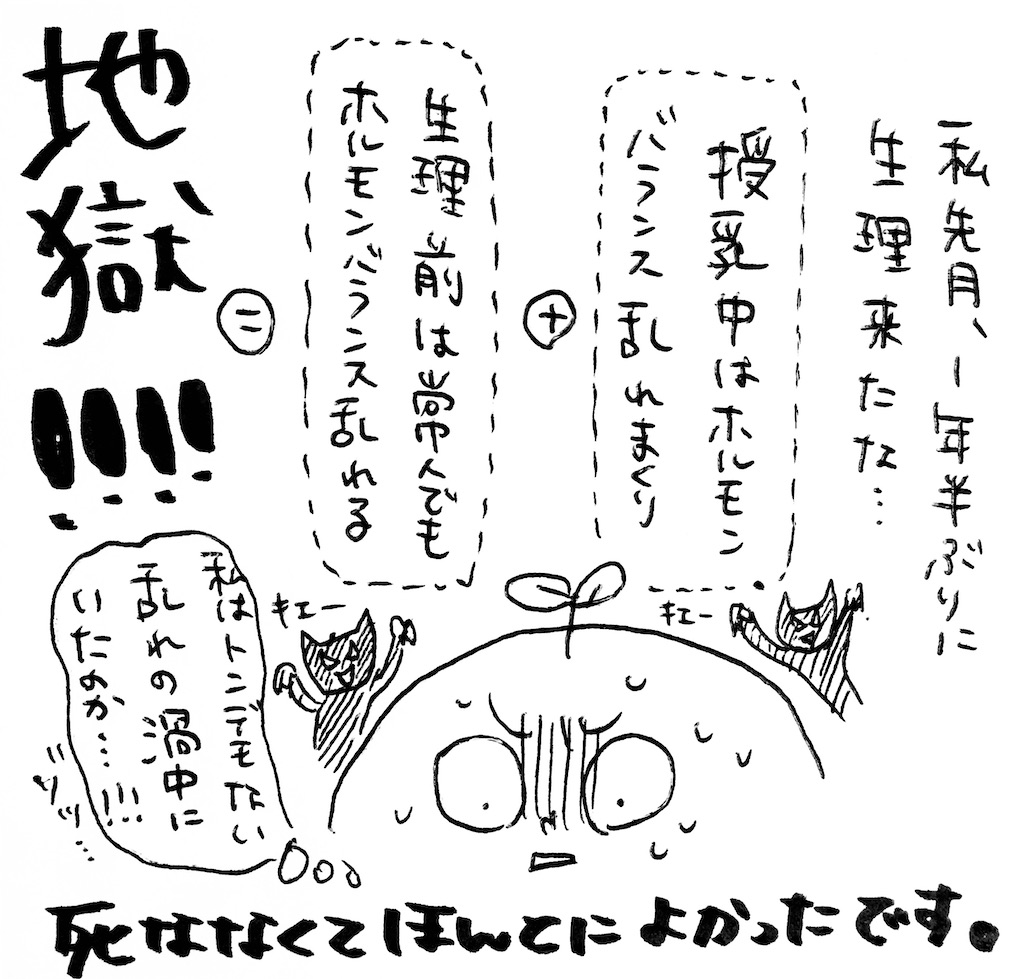 私先月、1年半ぶりに
生理来たな…
授乳中はホルモン
バランス乱れまくり
+
生理前は常人でも
ホルモンバランス乱れる
=
地獄!!!!
キェー
キェー
私はトンデモない
乱れの渦中に
いたのか…!!!
ゾッ…
死ななくてほんとによかったです。